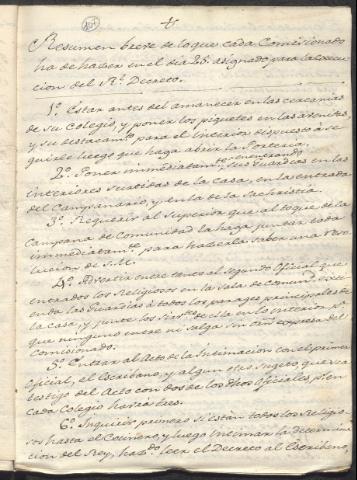 Resumen breve de lo que cada Comisionado
ha de hacer en el dia 25. asignado para la execu-
cion del Rl. Decreto.
1º. Estar antes del amanecer en las cercanias
de su Colegio, y poner los piquetes en las avenidas,
y su destacamto. para el interior dispuesto à se-
guirle luego que haga abrir la Porteria.
2º. Poner immediatamte. en entrando sus Guardias en las
interiores salidas de la casa, en la entrada
del Campanario, y en la de la Sachristia.
3º. Requerir al Superior que al toque de la
Campana de Comunidad la haga juntar toda
immediatamte. para hacerla saber una reso-
lucion de S. M.
4º. Advertir entre tanto al segundo Oficial que
entrados los Religiosos en la Sala de Comund.
endo las Guardias à todos los parages principales de
la casa, y junte los de ella en lo interior
que ninguno entre ni salga sin orn expresa del
Comisionado.
5º. Entrar al Acto de la Intimacion con el primer
Oficial, el Escribano, y algun otro Sugeto que sea
testigo del Acto con dos de los dhos Oficiales pr. en
cada Colegio havrà tres.
6º. Inquirir primero si están todos los Religio-
sos hasta el Cocinero, y luego intimar la determina-
cion del Rey, hado. leer el Decreto al Escribano,